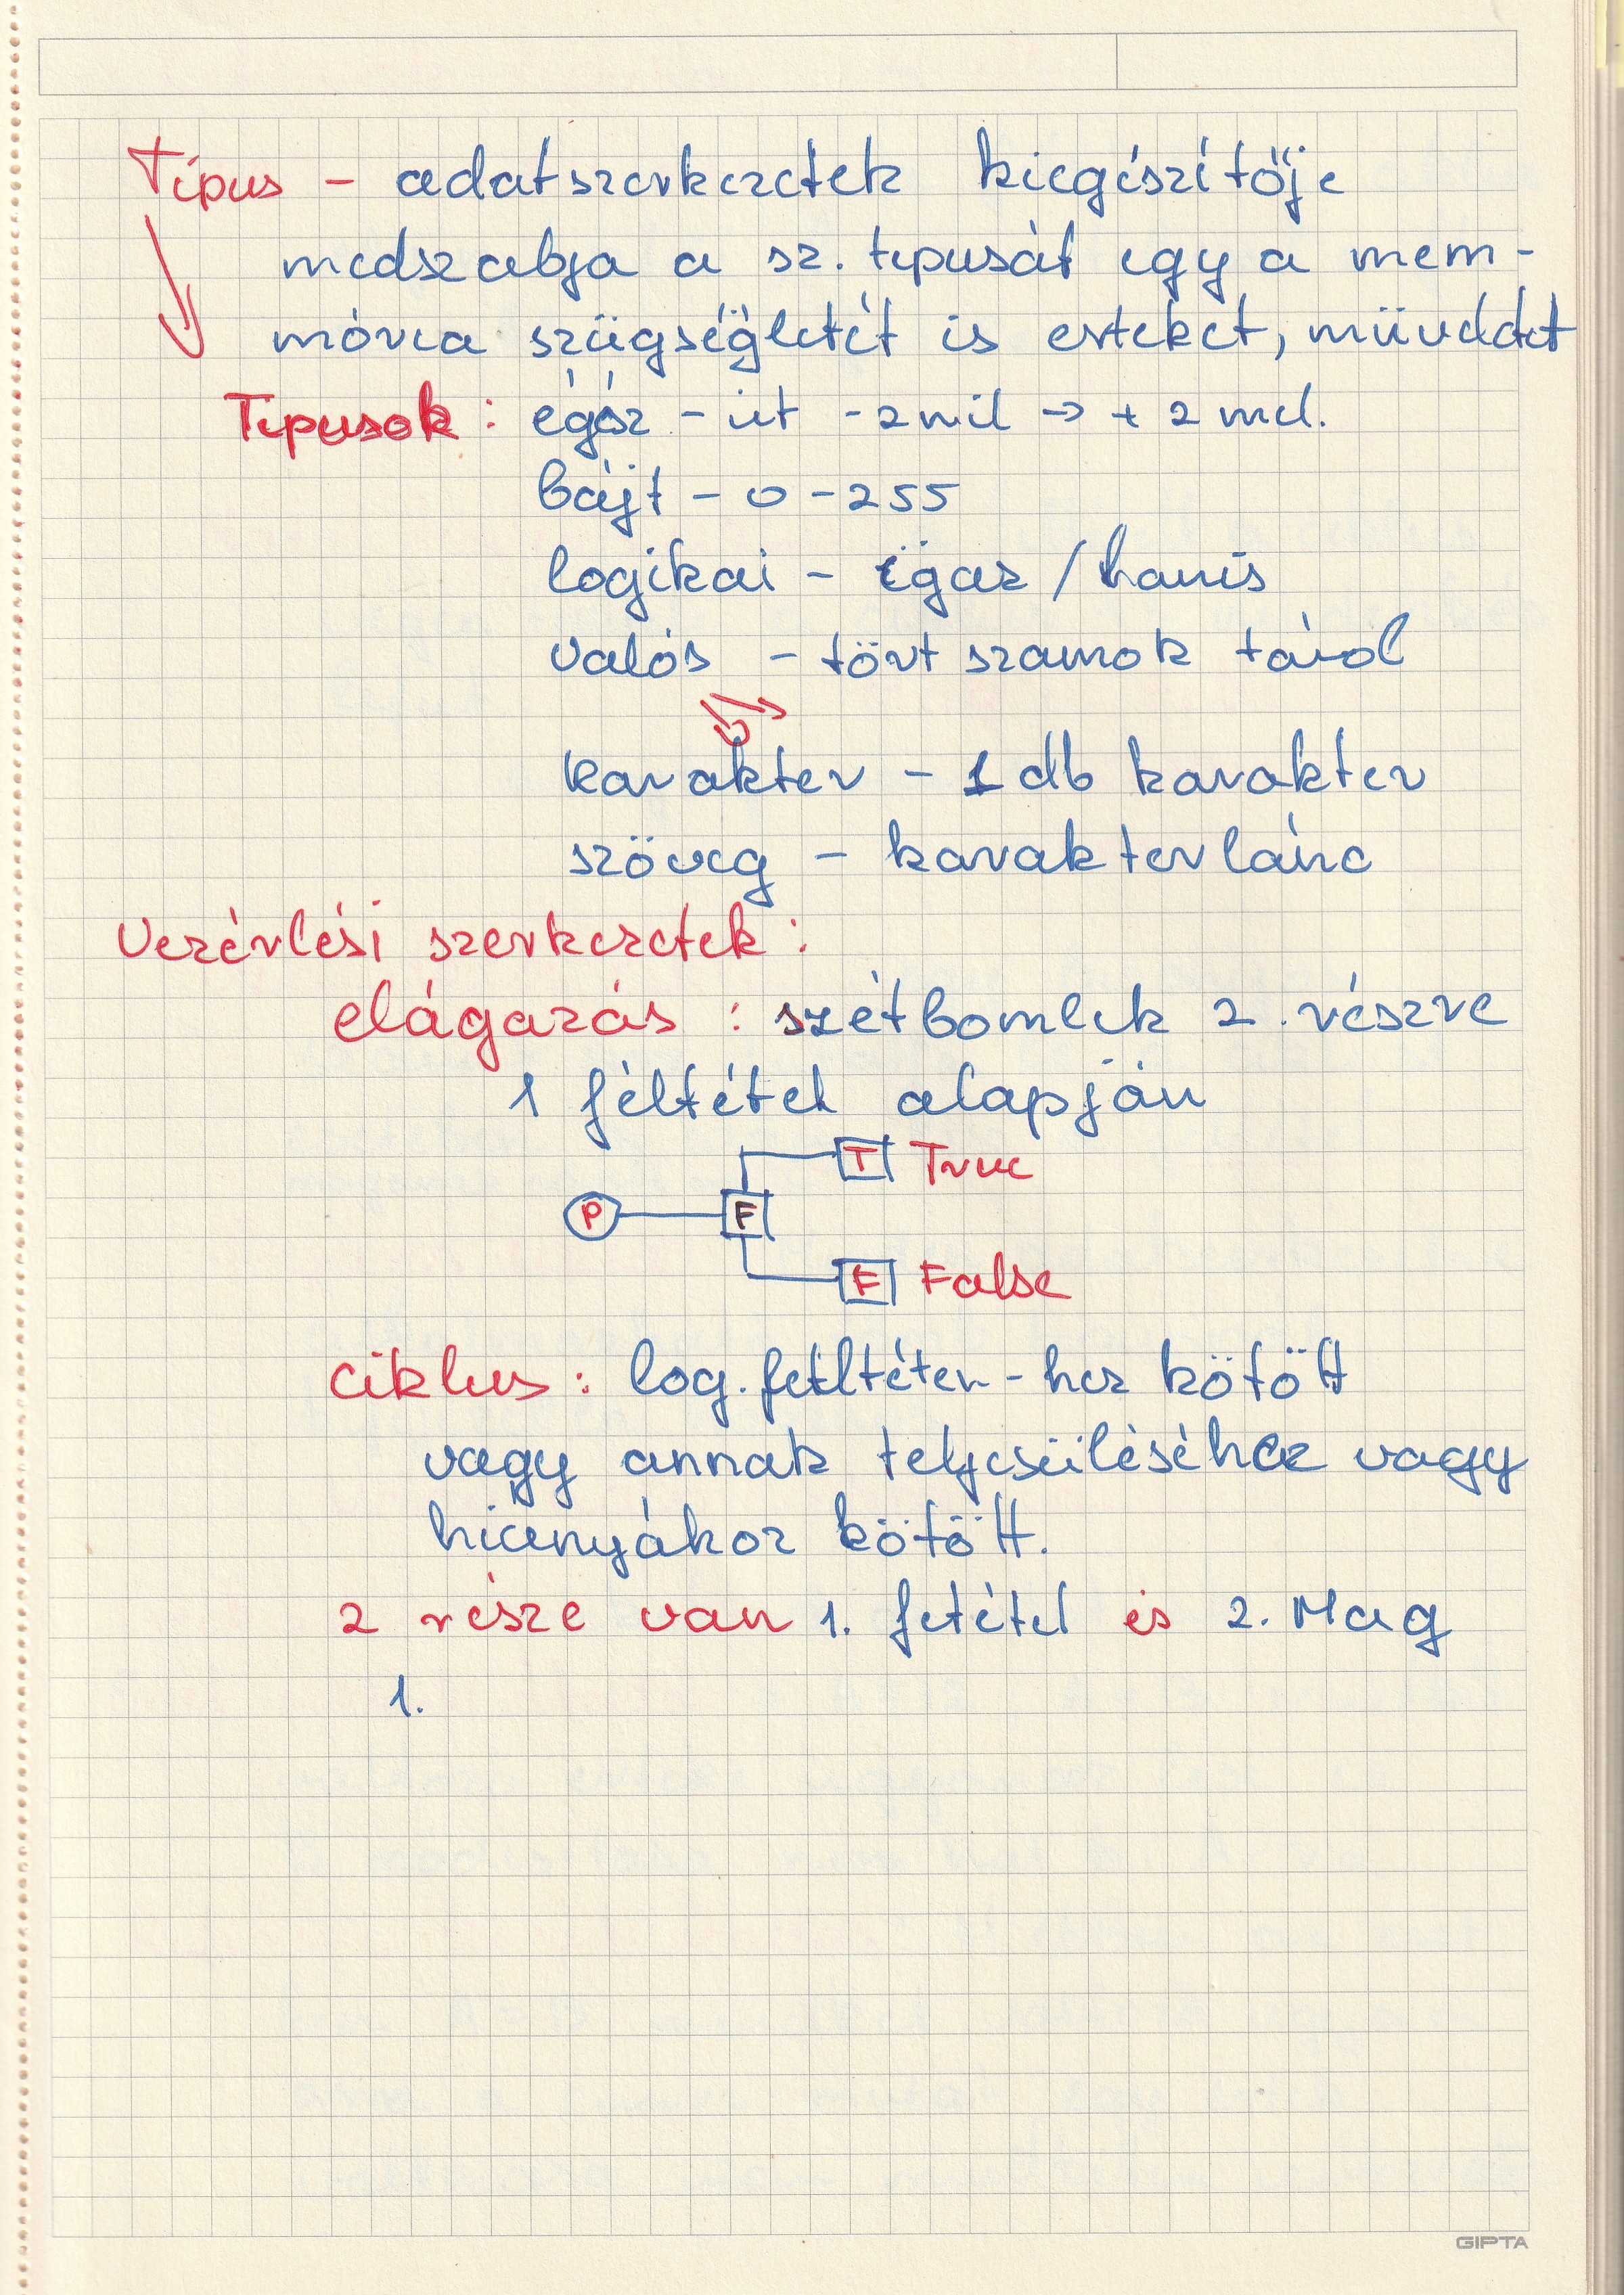 Típus - adatszerkezetek kiegészítője
medszabja a sz. tipusát egy a mem-
mória szügségletét is erteket, müveldet
Tipusok: égész - it - 2 mil → + 2 md.
bájt - 0 - 255
logikai - igaz / hamis
valós - tört szamok tárol
karakter - 1 db karakter
szöveg - karakterlánc
Vezérlési szerkezetek:
elágazás : szétbomlik 2. részre
1 féltétel alapján
T True
P F
F False
ciklus: log. - hez kötött
vagy annak teljesüléséhez vagy
hiányákoz kötött.
2 része van 1. fetétel és 2. Mag
1.
GIPTA